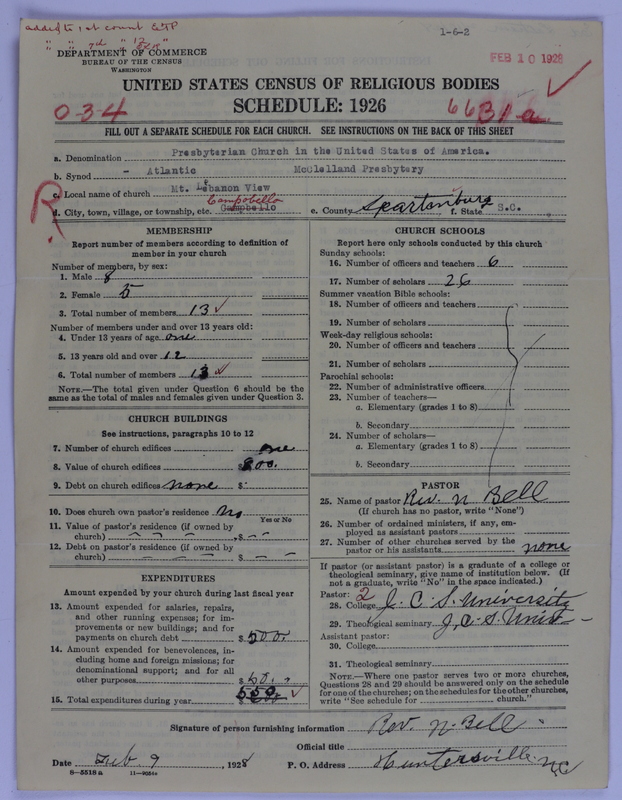 added to 1st count ETP
" " 7d " 12
DEPARTMENT OF COMMERCE
BUREAU OF THE CENSUS
WASHINGTON
1-6-2
FEB 10 1928
UNITED STATES CENSUS OF RELIGIOUS BODIES
SCHEDULE: 1926
034
6631a
FILL OUT A SEPARATE SCHEDULE FOR EACH CHURCH. SEE INSTRUCTIONS ON THE BACK OF THIS SHEET
a. Denomination Presbyterian Church in the United States of America.
b. Synod - Atlantic McClelland Presbytery
c. Local name of church Mt. Lebanon View
R
d. City, town, village, or township, etc. Campbello Campobello e. County Spartanburg f. State S.C.
MEMBERSHIP
Report number of members according to definition of member in your church
Number of members, by sex:
1. Male 8
2. Female 5
3. Total number of members 13 ✓
Number of members under and over 13 years old:
4. Under 13 years of age one
5. 13 years old and over 12
6. Total number of members 13 ✓
NOTE.—The total given under Question 6 should be the
same as the total of males and females given under Question 3.
CHURCH BUILDINGS
See instructions, paragraphs 10 to 12
7. Number of church edifices one
8. Value of church edifices $ 800.
9. Debt on church edifices none $
10. Does church own pastor's residence No
Yes or No
11. Value of pastor's residence (if owned by
church) $
12. Debt on pastor's residence (if owned by
church) $
EXPENDITURES
Amount expended by your church during last fiscal year
13. Amount expended for salaries, repairs,
and other running expenses; for im-
provements or new buildings; and for
payments on church debt $ 500.
14. Amount expended for benevolences, in-
cluding home and foreign missions; for
denominational support; and for all
other purposes $ 50.
15. Total expenditures during year 550 ✓
CHURCH SCHOOLS
Report here only schools conducted by this church
Sunday schools:
16. Number of officers and teachers 6
17. Number of scholars 26
Summer vacation Bible schools:
18. Number of officers and teachers
19. Number of scholars
Week-day religious schools:
20. Number of officers and teachers
21. Number of scholars
Parochial schools:
22. Number of administrative officers
23. Number of teachers—
a. Elementary (grades 1 to 8)
b. Secondary
24. Number of scholars—
a. Elementary (grades 1 to 8)
b. Secondary
PASTOR
25. Name of pastor Rev. N Bell
(If church has no pastor, write "None")
26. Number of ordained ministers, if any, em-
ployed as assistant pastors
27. Number of other churches served by the
pastor or his assistants none
If pastor (or assistant pastor) is a graduate of a college or
theological seminary, give name of institution below. (If
not a graduate, write "No" in the space indicated.)
Pastor: 2
28. College J. C. S. University
29. Theological seminary J. C. S. Univ.
Assistant pastor:
30. College
31. Theological seminary
NOTE.—Where one pastor serves two or more churches,
Questions 28 and 29 should be answered only on the schedule
for one of the churches; on the schedules for the other churches,
write "See schedule for church."
Signature of person furnishing information Rev. N. Bell
Official title
Date Feb 9, 1928 P. O. Address Huntersville, NC
8—5518 a 11—9054a